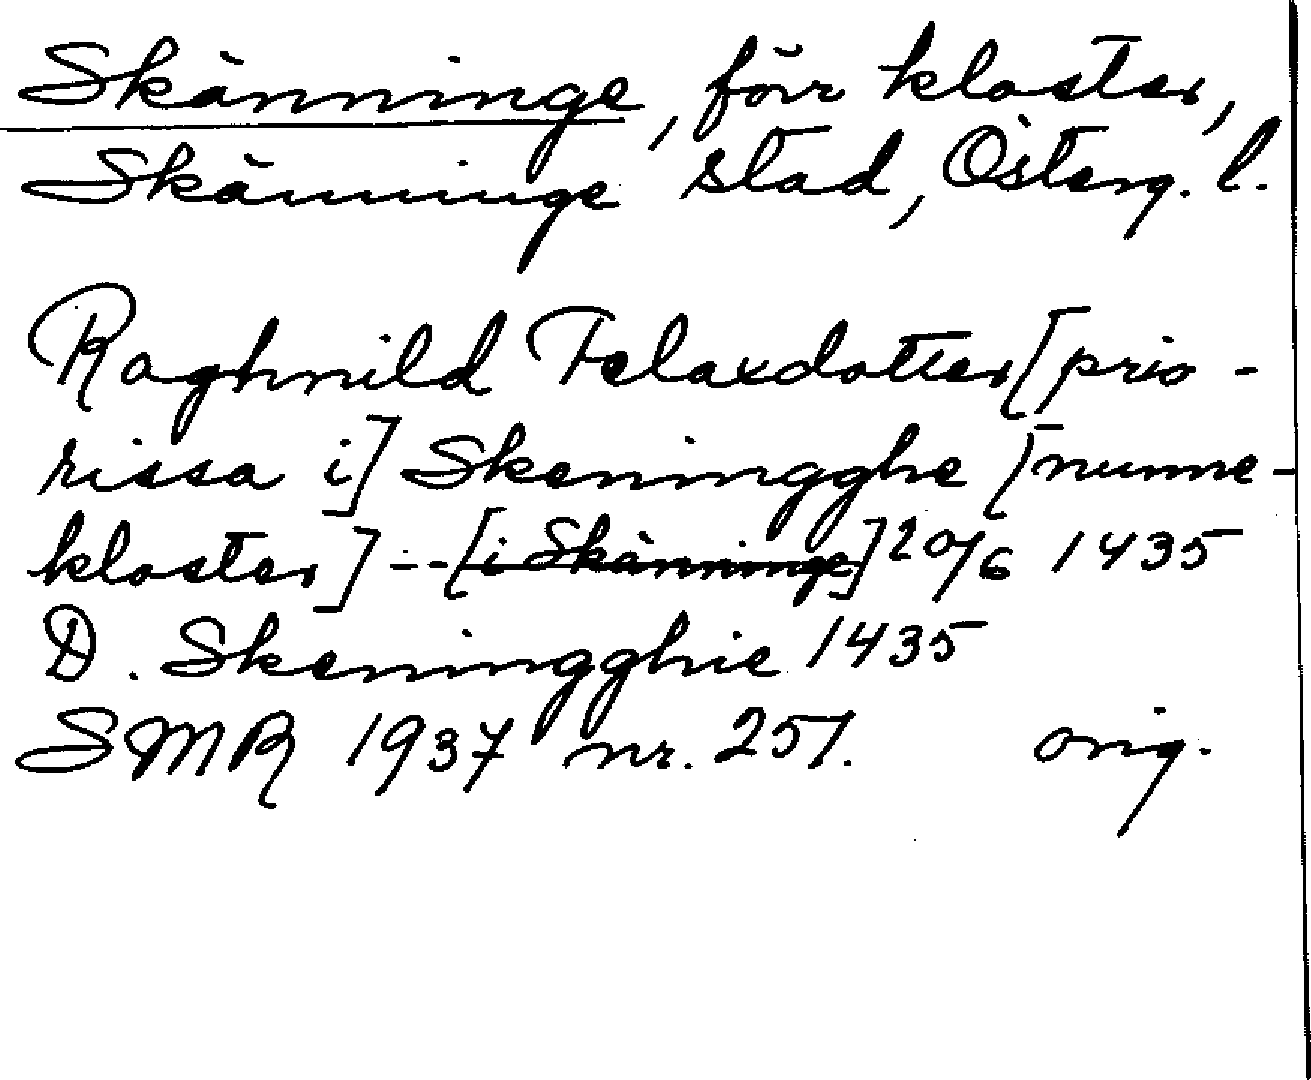 Skänninge, förr kloster,
Skänninge stad, Österg. l.
Raghnild Felaxdotter [prio-
rissa i] Skeningghe [nunne-
kloster] --- [i Skänninge] 20/6 1435
D. Skeningghie 1435
SMR 1937 nr. 251. orig.